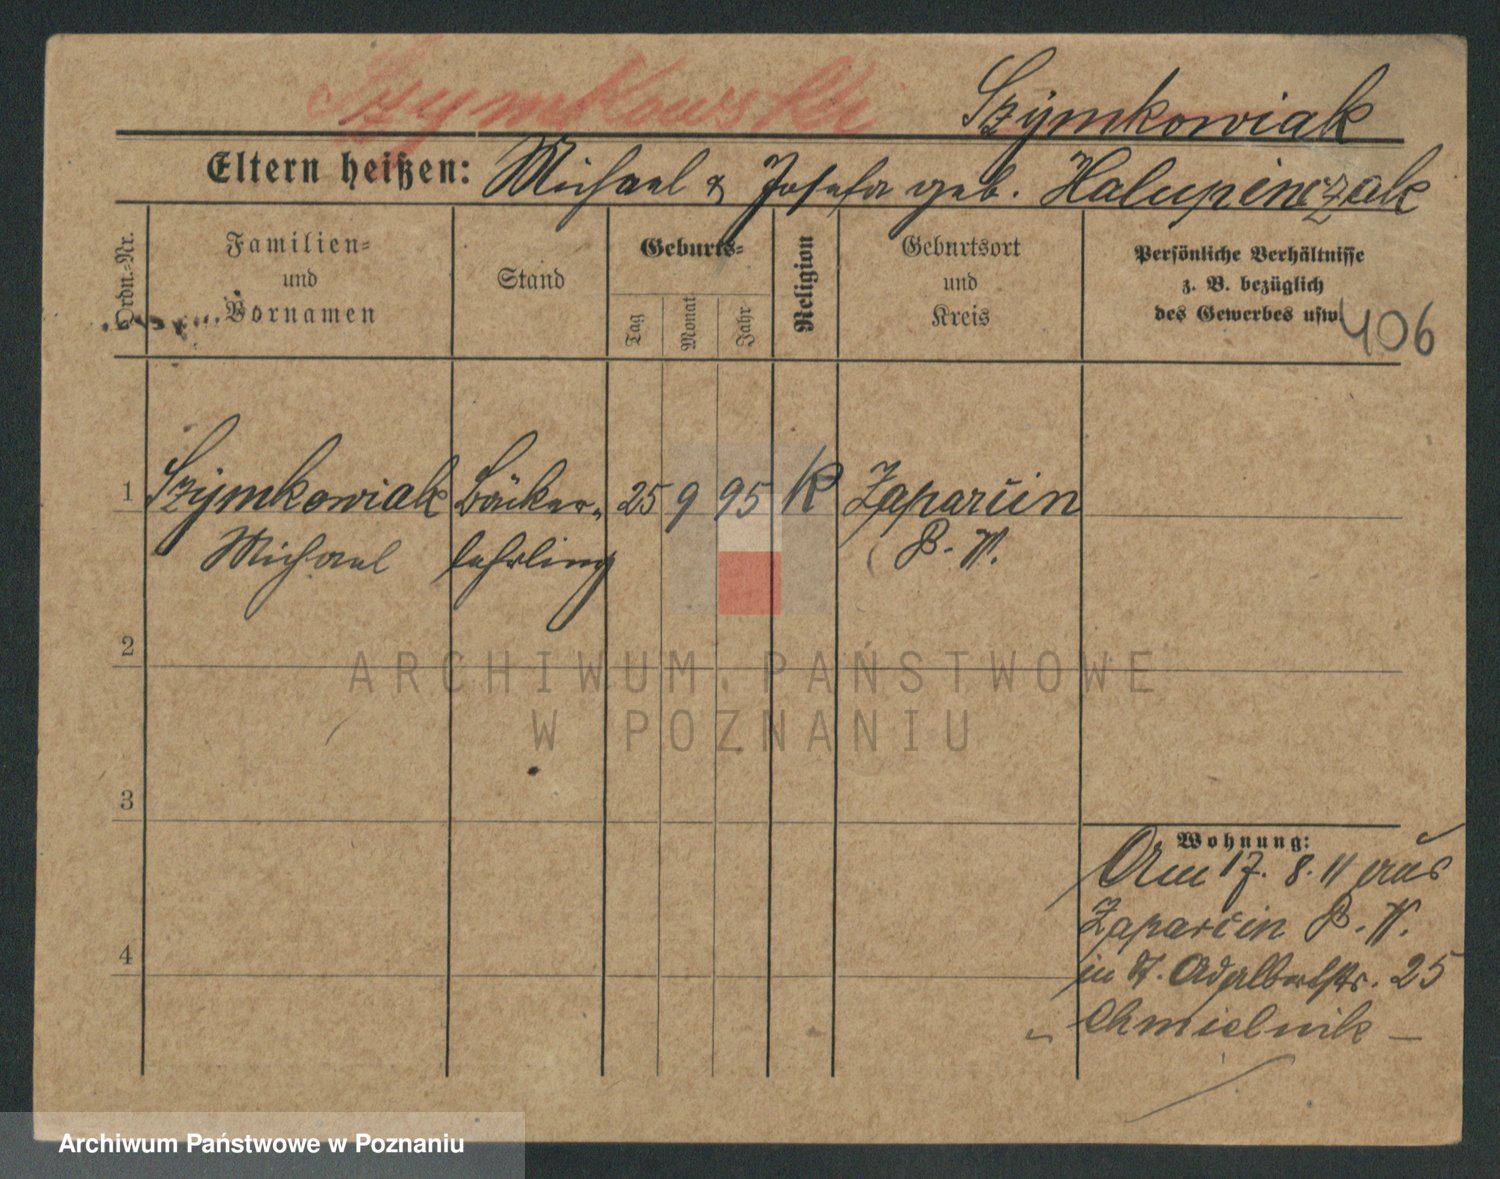 Szymkowski
Szymkowiak
Eltern heißen: Michael & Josefa geb. Halupinczak
Ordn.-Nr.
Familien-
und
Vornamen
Stand
Geburts-
Tag
Monat
Jahr
Religion
Geburtsort
und
Kreis
Persönliche Verhältnisse
z. B. bezüglich
des Gewerbes usw.
406
1 Szymkowiak Bäcker- 25 9 95 K Zaparcin
Michael lehrling P. W.
2
3
4
Wohnung:
Am 17. 8. 11 aus
Zaparcin P. W.
in St. Adalbertstr. 25
Chmielnik
ARCHIWUM PAŃSTWOWE
W POZNANIU
Archiwum Państwowe w Poznaniu